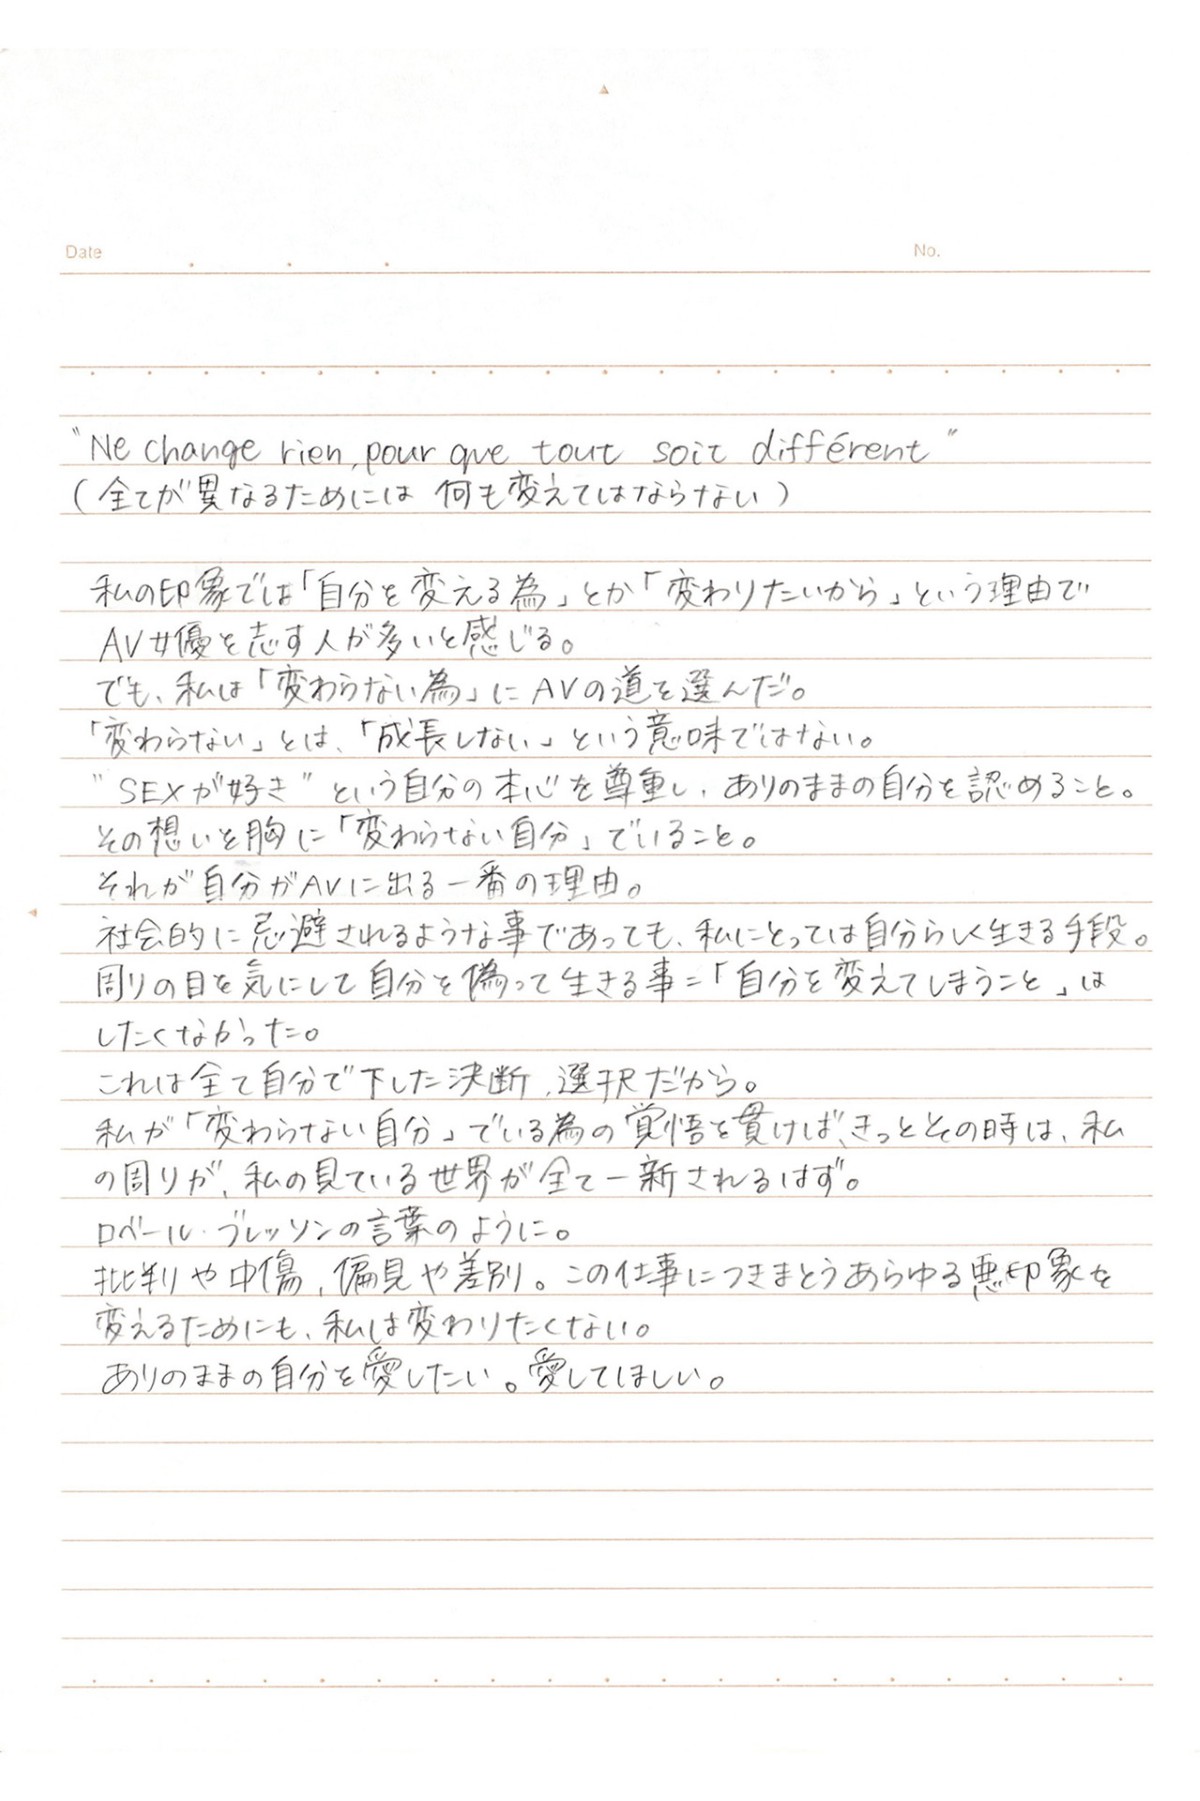 Date
No.
"Ne change rien, pour que tout soit différent"
(全てが異なるためには 何も変えてはならない)
私の印象では「自分を変える為」とか「変わりたいから」という理由で
AV女優を志す人が多いと感じる。
でも、私は「変わらない為」にAVの道を選んだ。
「変わらない」とは、「成長しない」という意味ではない。
"SEXが好き"という自分の本心を尊重し、ありのままの自分を認めること。
その想いを胸に「変わらない自分」でいること。
それが自分がAVに出る一番の理由。
社会的に忌避されるような事であっても、私にとっては自分らしく生きる手段。
周りの目を気にして自分を偽って生きる事=「自分を変えてしまうこと」は
したくなかった。
これは全て自分で下した決断、選択だから。
私が「変わらない自分」でいる為の覚悟を貫けば、きっとその時は、私
の周りが、私の見ている世界が全て一新されるはず。
ロベール・ブレッソンの言葉のように。
批判や中傷、偏見や差別。この仕事につきまとうあらゆる悪印象を
変えるためにも、私は変わりたくない。
ありのままの自分を愛したい。愛してほしい。